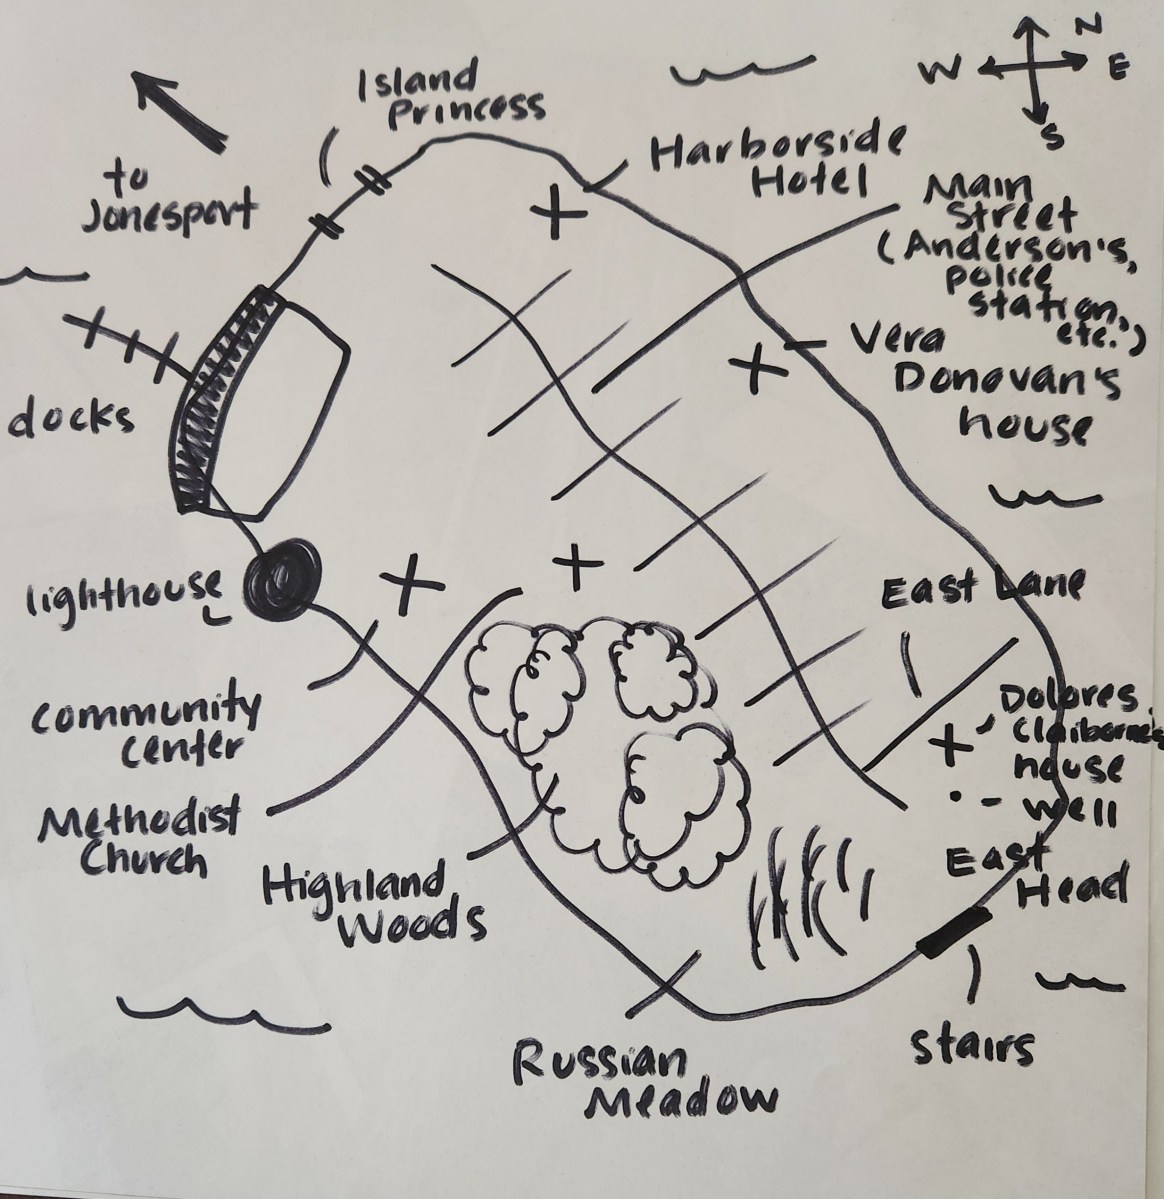 N
W E
S
Island
Princess
to
Jonesport
Harborside
Hotel
Main
Street
(Anderson's,
police
station,
etc.)
Vera
Donovan's
house
docks
lighthouse
East Lane
community
center
Dolores
Claiborne's
house
well
Methodist
Church
East
Head
Highland
Woods
Russian
Meadow
stairs